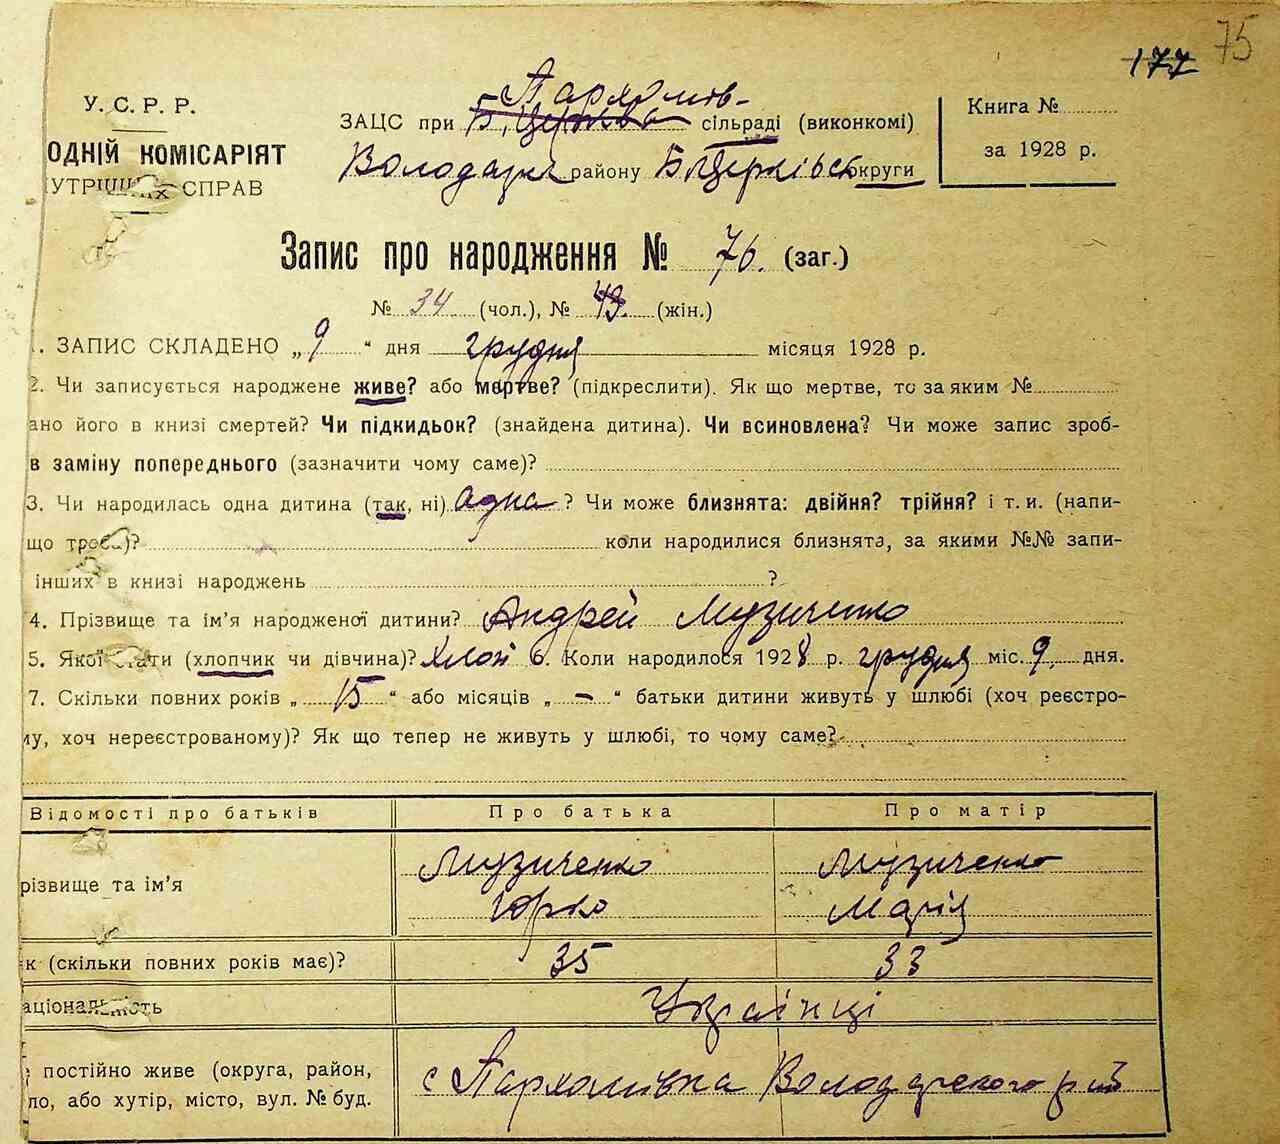 75
177
У. С. Р. Р.
ОДНІЙ КОМІСАРІЯТ
УТРІШНИХ СПРАВ
Пархомів-
ЗАЦС при Б. Церква сільраді (виконкомі)
Володарськ району Б Церківськ округи
Книга №
за 1928 р.
Запис про народження № 76. (заг.)
№ 34 (чол.), № 43. (жін.)
1. ЗАПИС СКЛАДЕНО „ 9 “ дня грудня місяця 1928 р.
2. Чи записується народжене живе? або мертве? (підкреслити). Як що мертве, то за яким №
ано його в книзі смертей? Чи підкидьок? (знайдена дитина). Чи всиновлена? Чи може запис зроб-
в заміну попереднього (зазначити чому саме)?
3. Чи народилась одна дитина (так, ні) одна ? Чи може близнята: двійня? трійня? і т. и. (напи-
що треба)? коли народилися близнята, за якими №№ запи-
інших в книзі народжень ?
4. Прізвище та ім’я народженої дитини? Андрей Музиченко
5. Якої стати (хлопчик чи дівчина)? Хлоп 6. Коли народилося 1928 р. грудня міс. 9 дня.
7. Скільки повних років „ 15 “ або місяців „ – “ батьки дитини живуть у шлюбі (хоч реєстро-
му, хоч нереєстрованому)? Як що тепер не живуть у шлюбі, то чому саме?
Відомості про батьків Про батька Про матір
Музиченко Музиченко
різвище та ім’я
Юрко Марія
к (скільки повних років має)? 35 33
аціональність Українці
постійно живе (округа, район,
с Пархомівка Володарського р-ну
ло, або хутір, місто, вул. № буд.